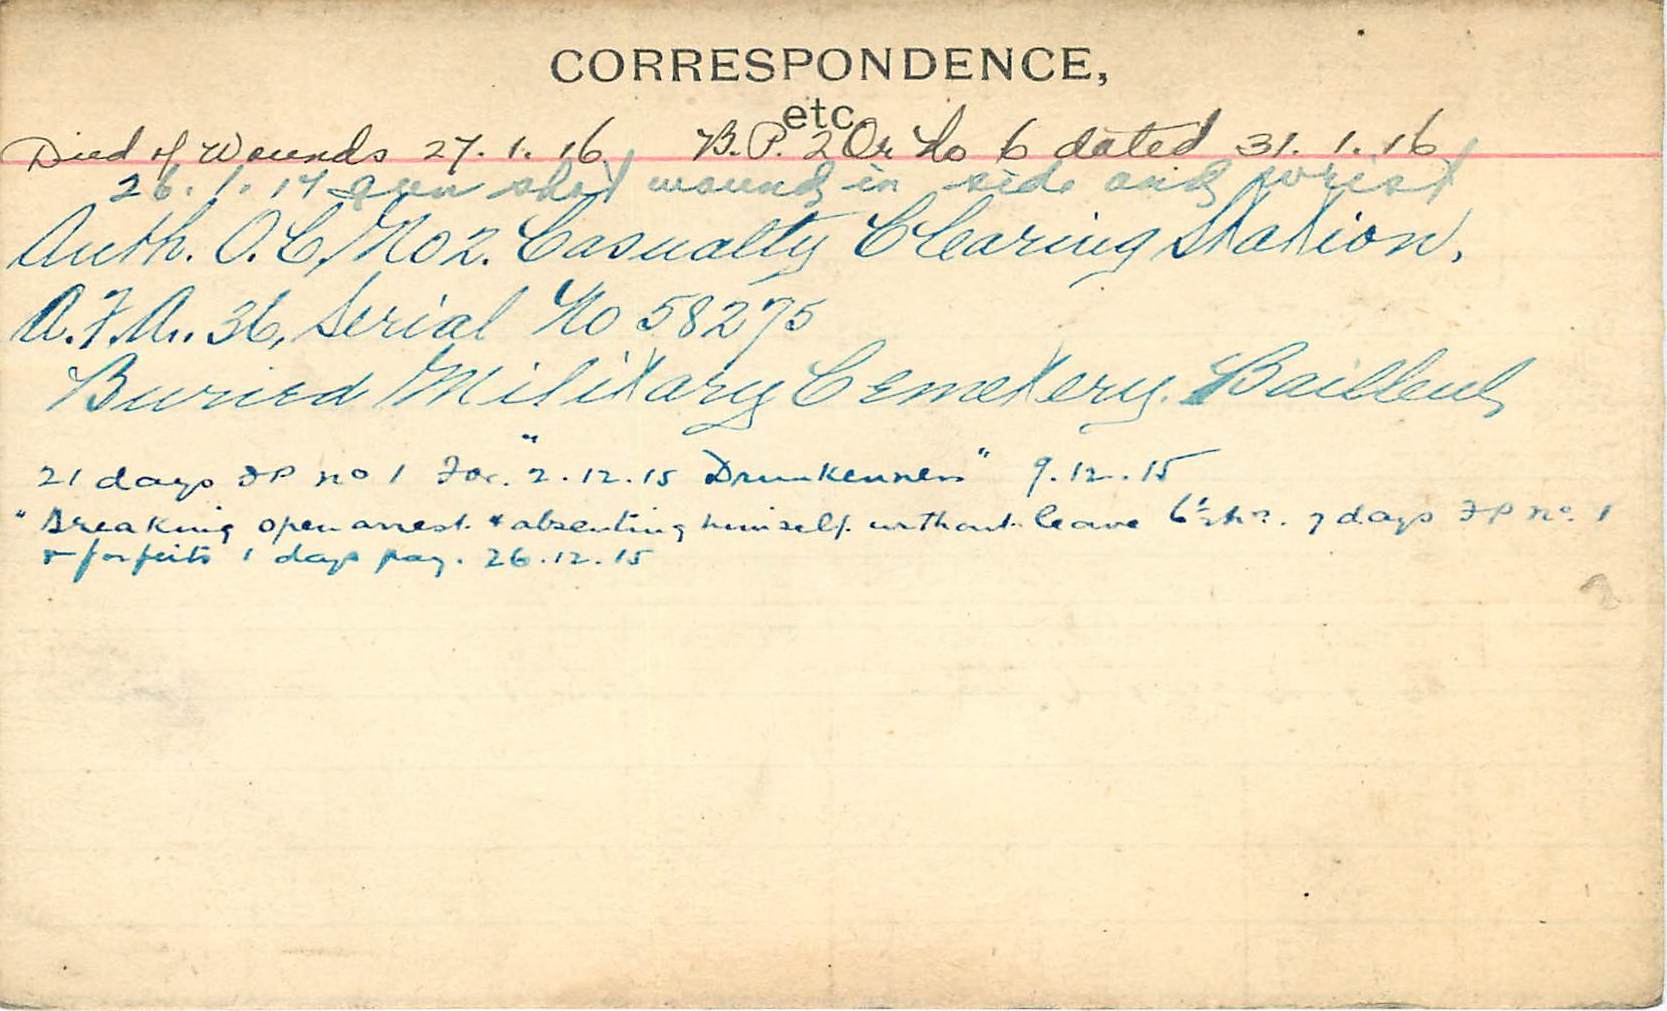 CORRESPONDENCE,
etc
Died of Wounds 27.1.16. B.P. 2 Or No 6 dated 31.1.16
26.1.17 gun shot wound in side and wrist
Auth. O.C. No 2. Casualty Clearing Station,
A.F.A. 36, Serial No 58275
Buried Military Cemetery. Bailleul
21 days FP no 1 For. "2.12.15 Drunkenness" 9.12.15
"Breaking open arrest & absenting himself without leave 6½ hrs. 7 days FP no. 1
& forfeits 1 days pay. 26.12.15